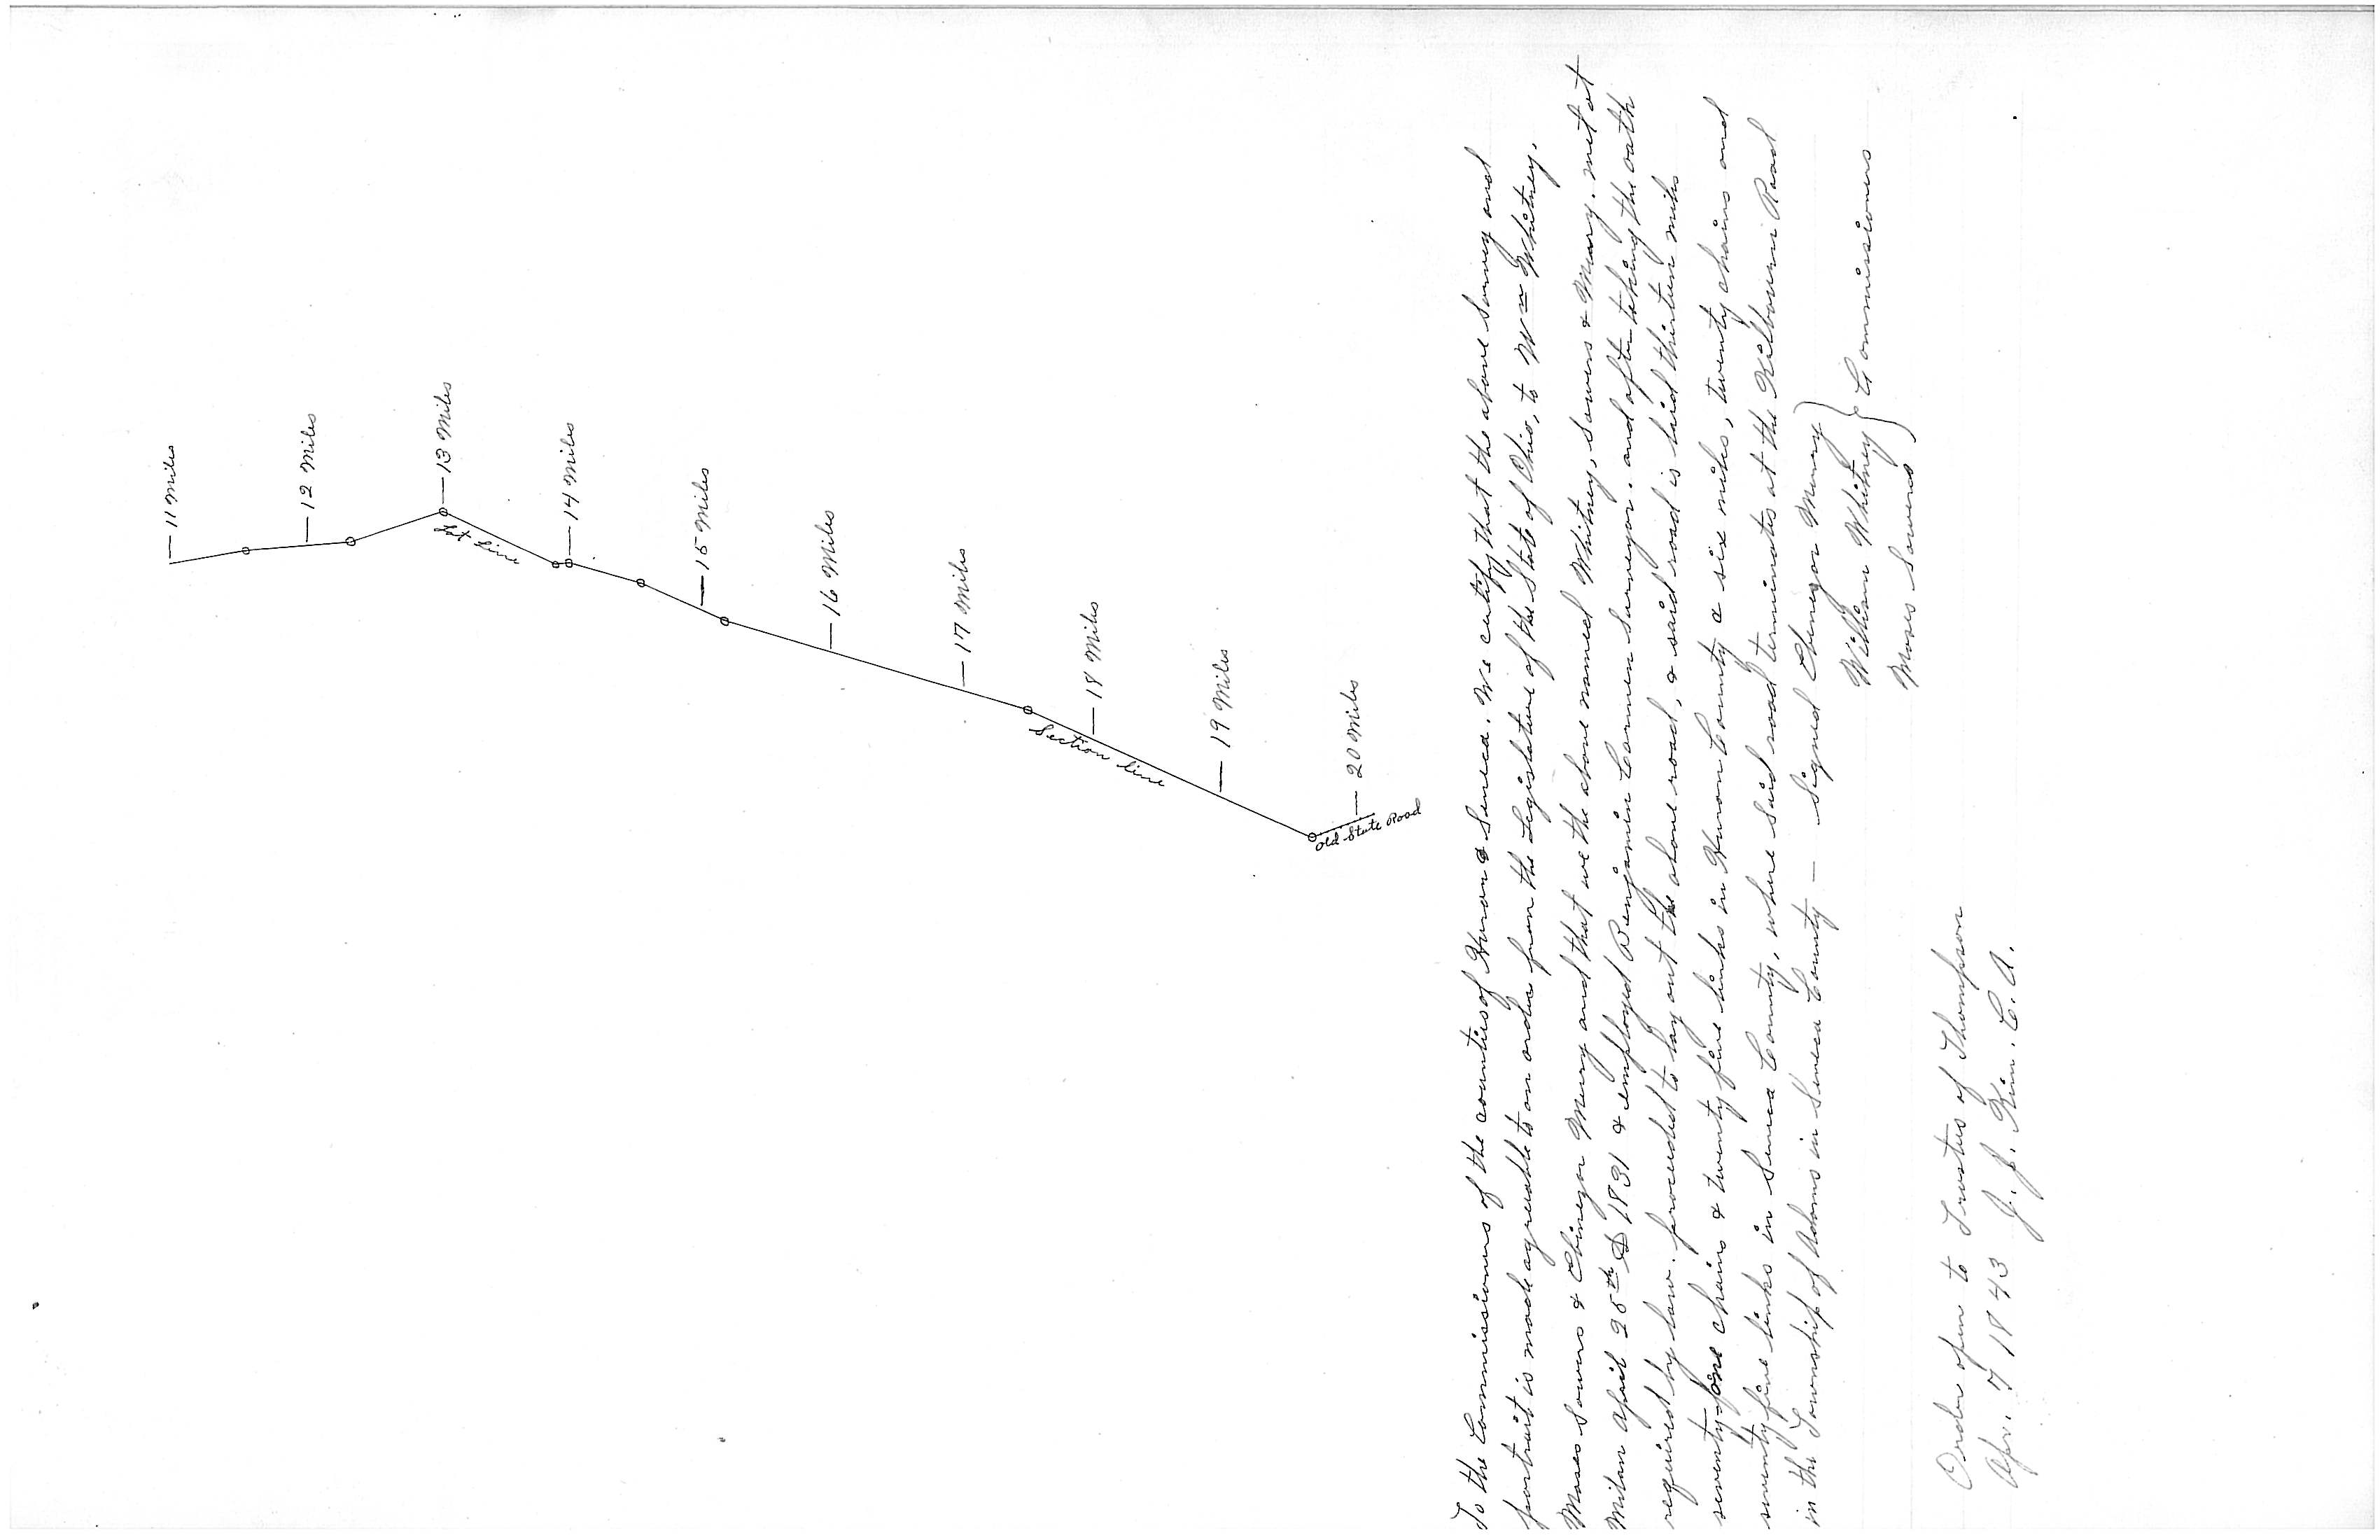 11 Miles
12 Miles
13 Miles
Lot line
14 Miles
15 Miles
16 Miles
17 Miles
18 Miles
Section line
19 Miles
20 Miles
Old State Road
To the Commissioners of the counties of Huron & Seneca. We certify that the above Survey and
portrait is made agreeable to an order from the Legislature of the State of Ohio, to Wm Whitney,
Moses Sowers & Ebinezor Merry and that we the above named Whitney, Sowers & Merry. met at
Milan April 25th AD 1831 & employed Benjamin Carmen Surveyor. and after taking the oath
required by law. proceeded to lay out the above road, & said road is laid thirteen miles
seventy-one chains & twenty five links in Huron County & six miles, twenty chains and
seventy five links in Seneca County, where said road terminates at the Kilbourn Road
in the Township of Adams in Seneca County — Signed Ebenezor Merry
William Whitney } Commissioners
Moses Sowers
Order open to Trustees of Thompson
Apr. 7 1843 J. J. Kim. C. A.